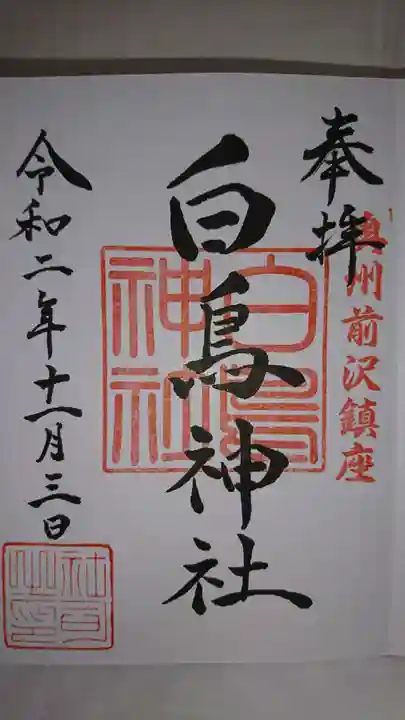 奉拝
奥州前沢鎮座
白鳥神社
白鳥神社
令和二年十一月三日
社司之印